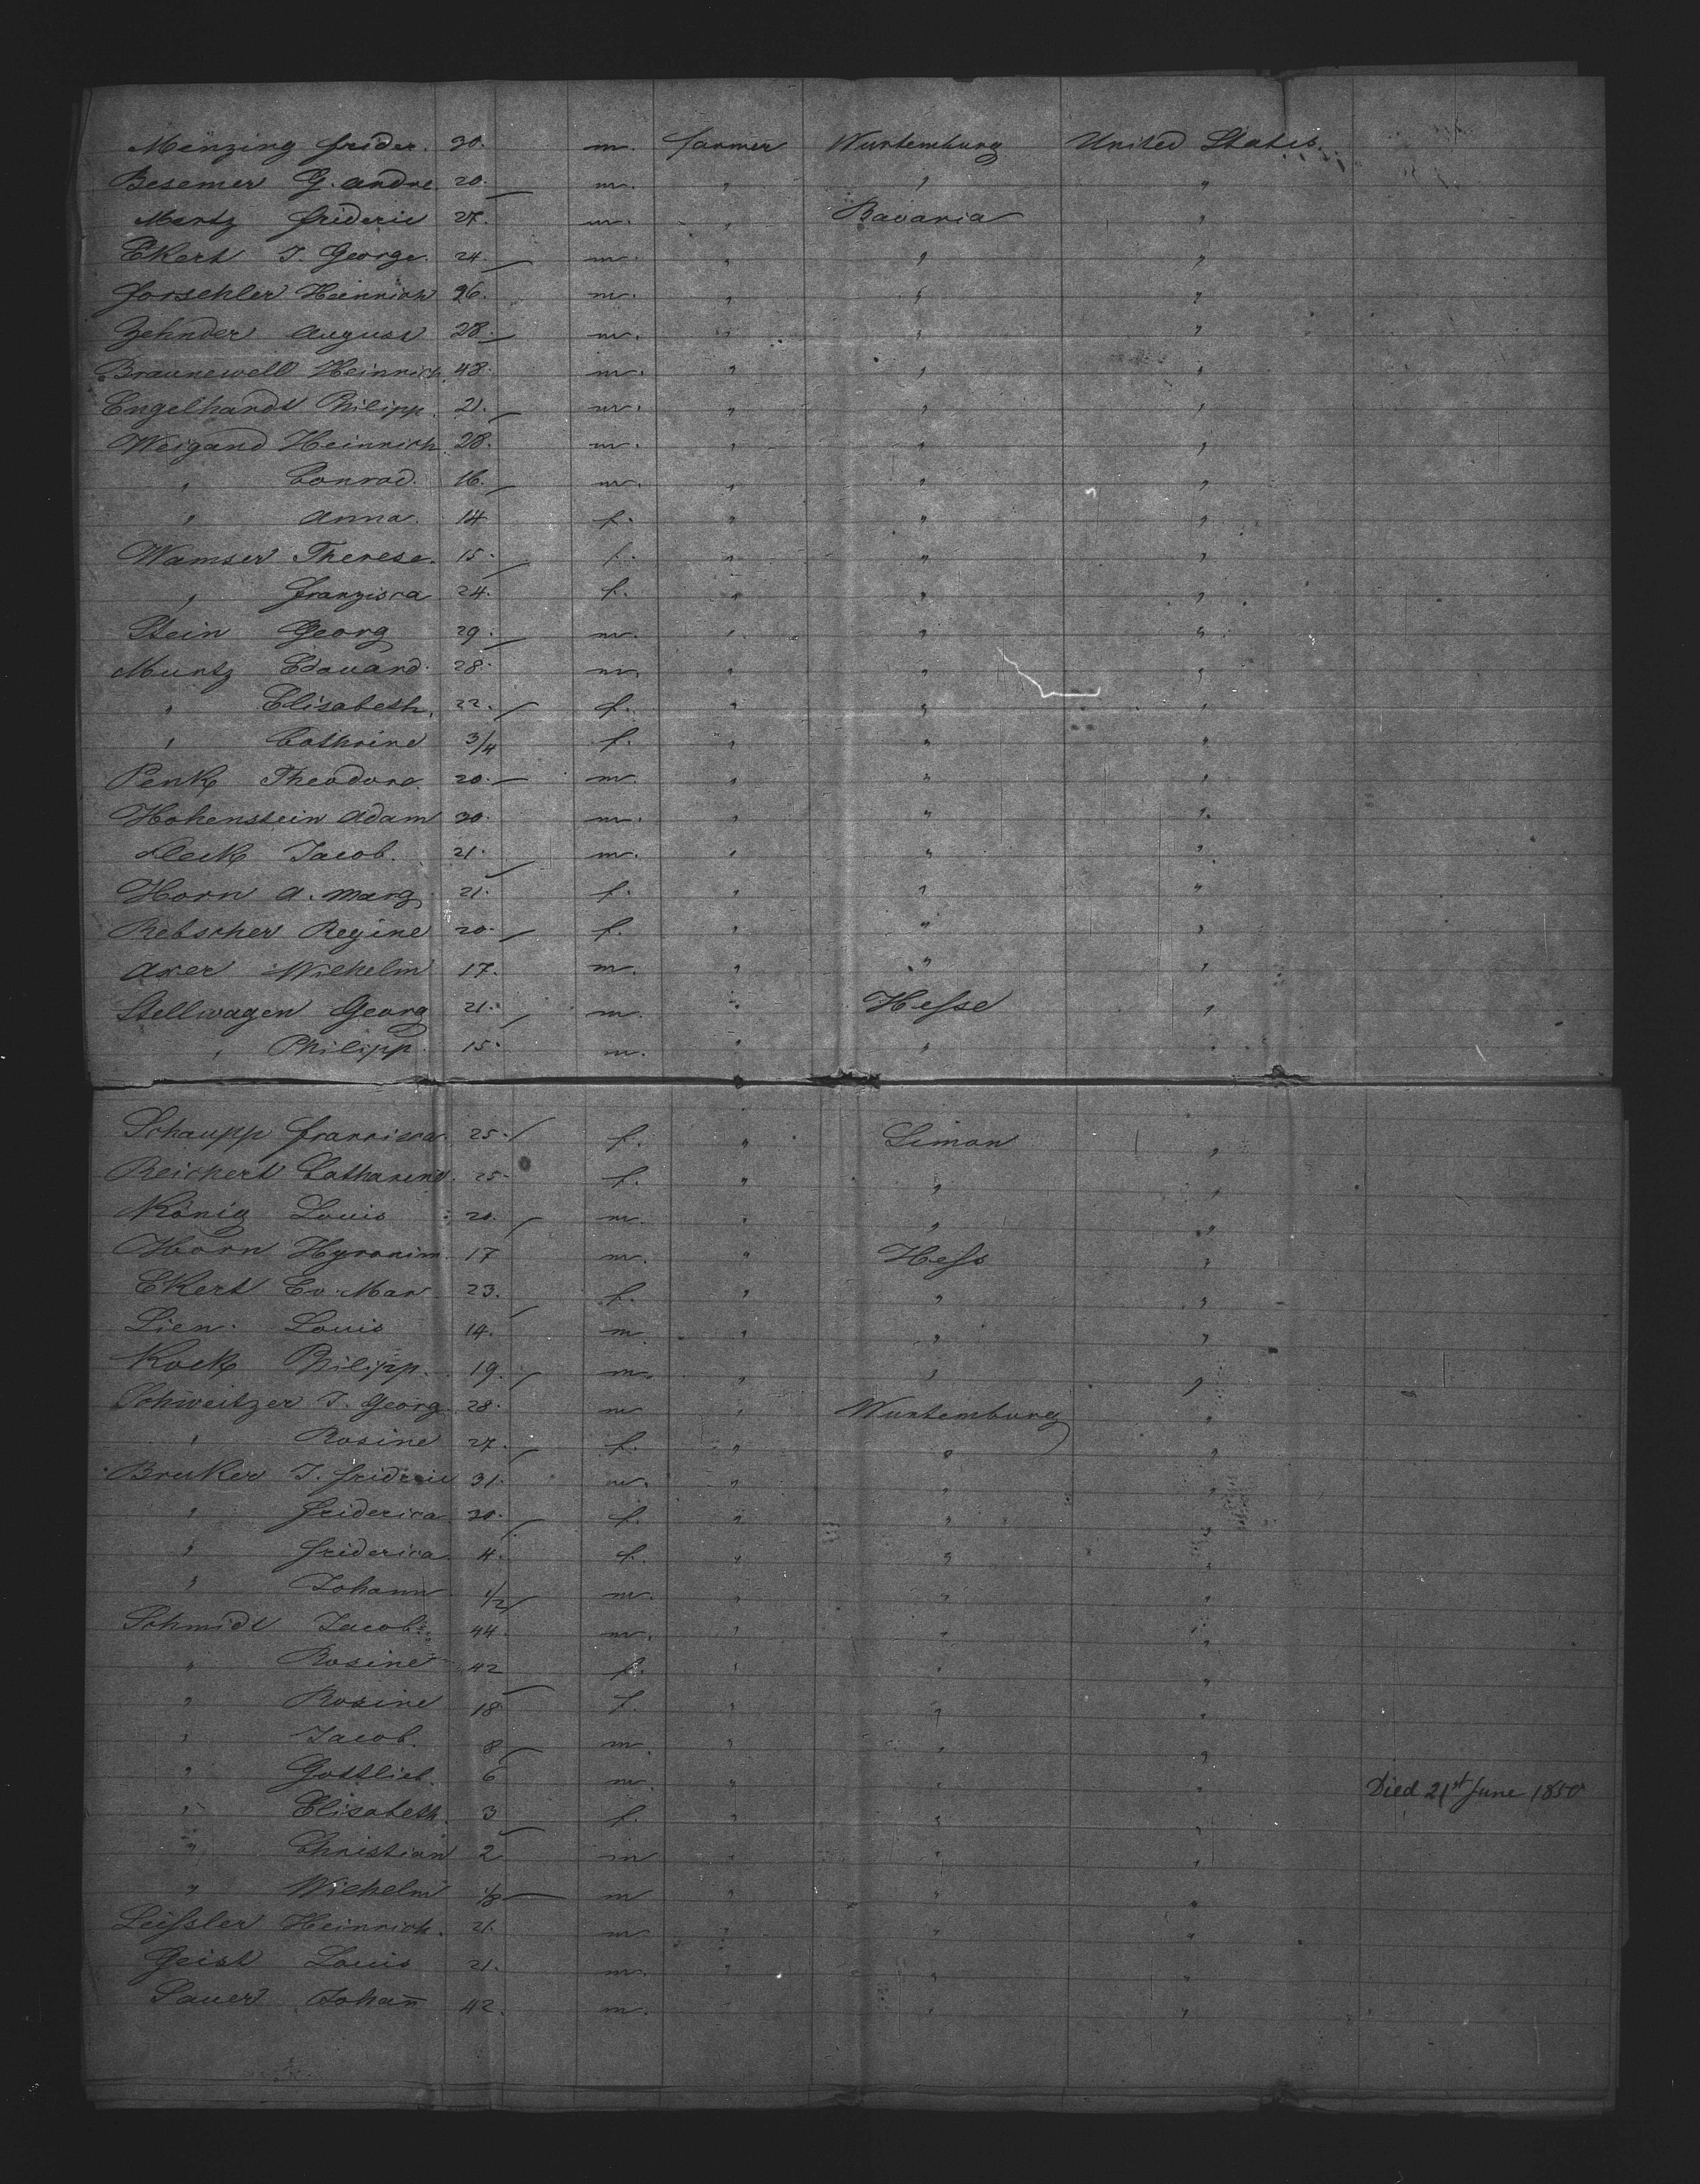 Menzing frider. 30. m. farmer Wurtemburg United States.
Besemer G. andre 20. m. " " "
Mertz frideric 27. m. " Bavaria "
Ekert J. George. 24. m. " " "
forschler Heinrich 26. m. " " "
Zehnder august 28. m. " " "
Braunewell Heinrich 48. m. " " "
Engelhardt Philipp. 21. m. " " "
Weigand Heinrich 28. m. " " "
" Conrad. 16. m. " " "
" anna. 14 f. " " "
Wamser Therese. 15. f. " " "
" franzisca 24. f. " " "
Stein Georg 29. m. " " "
Muntz Edouard. 28. m. " " "
" Elisabeth. 22. f. " " "
" Cathrine 3/4 f. " " "
Penk Theodore. 20. m. " " "
Hohenstein adam 30. m. " " "
Fleck Jacob. 21. m. " " "
Horn a. marg 21. f. " " "
Rebscher Regine 20. f. " " "
axer Wilhelm 17. m. " " "
Stellwagen Georg 21. m. " Hesse "
" Philipp. 15. m. " " "
Schaupp francisca 25. f. " Simon "
Reichert Catharine. 25 f. " " "
König Louis 20. m. " " "
Horn Hyronim. 17 m. " Hess "
Ekert Ev. Mar. 23. f. " " "
Lien. Louis 14. m. " " "
Kock Philipp. 19. m. " " "
Schweitzer J. Georg. 28. m " Wurtemburg "
" Rosine 27. f. " " "
Bruker J. frideric 31. m. " " "
" friderica 30. f. " " "
" friderica 4. f. " " "
" Johann 1/2 m. " " "
Schmidt Jacob. 44. m. " " "
" Rosine 42 f. " " "
" Rosine 18 f. " " "
" Jacob. 8 m. " " "
" Gottlieb. 6 m. " " " Died 21st June 1850
" Elisabeth. 3 f. " " "
" Christian 2 m " " "
" Wilhelm 1/8 m " " "
Leissler Heinrich. 21. m. " " "
Geist Louis 21. m. " " "
Sauer Johan̄ 42. m. " " "